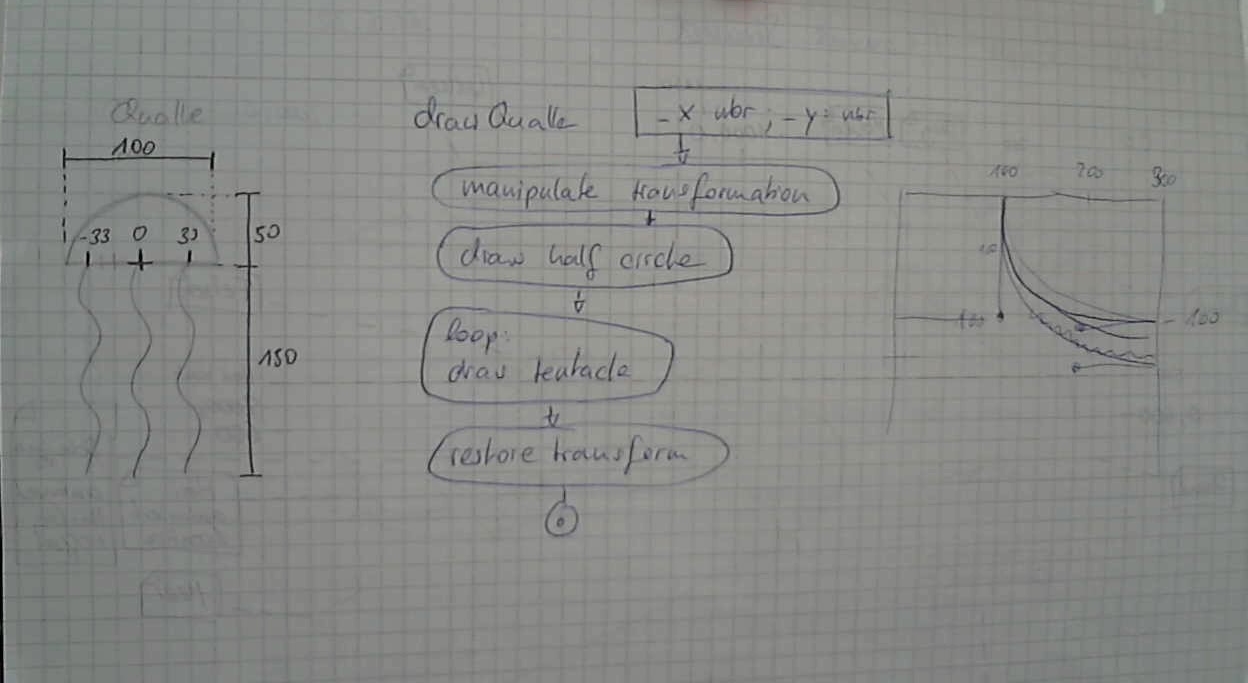 Qualle
100
-33 0 33
50
150
drawQualle
- x nbr ; - y: nbr
manipulate transformation
draw half circle
loop:
draw tentacle
restore transform
100 200 300
100
100